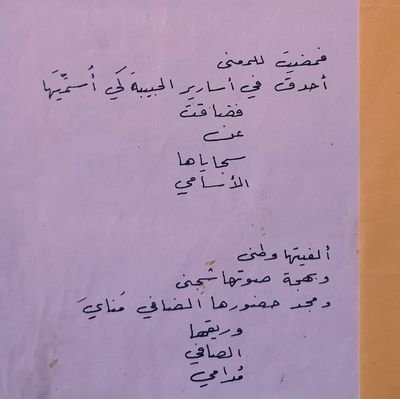 فمضيت للمرمى
أحدق في أسارير الحبيبة كي أُسمّيَها
فضاقت
عن
سجاياها
الأسامي
ألفيتها وطني
وبهجة صوتها شجني
ومجد حضورها الضافي مُنايَ
وريقها
الصافي
مُدامي